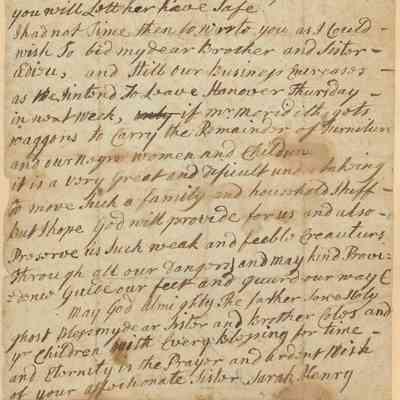 you will Let her have Safe
I had not Time then to write to you as I Could
wish To bid my dear Brother and Sister
adieu, and Still our Business Increases
as We Intend To Leave Hanover Thursday
in next Week, only if mr meridith gets
waggons to Carry the Remainder of furniture
and our Negro women and Children
it is a very Great and Dificult undertaking
to move Such a family and household Stuff
but I hope God will provide for us and also
Preserve us Such weak and feeble Creauturs
Through all our Dangers, and may kind Provi
dence Guide our feet and guard our way
May God almighty, The father Son & Holy
ghost Bless my dear Sister and Brother and
yr Children with Every blessing for time
and Eternity is the Prayer and ardent Wish
of your affectionate Sister Sarah Henry